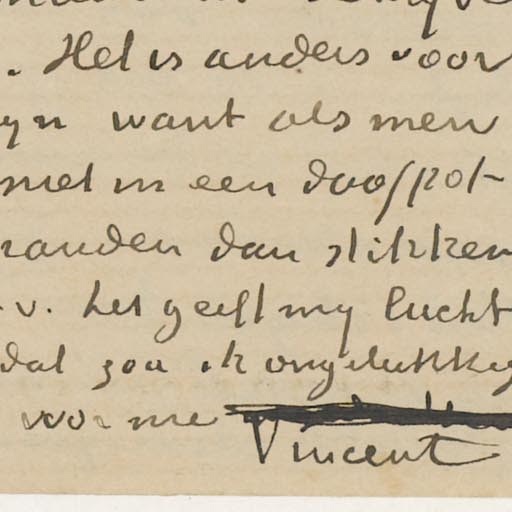 . Het is anders voor
yn want als men
niet in een doofpot-
randen dan stikken
v. het geeft my lucht
dat zou ik ongelukkig
voor me
Vincent